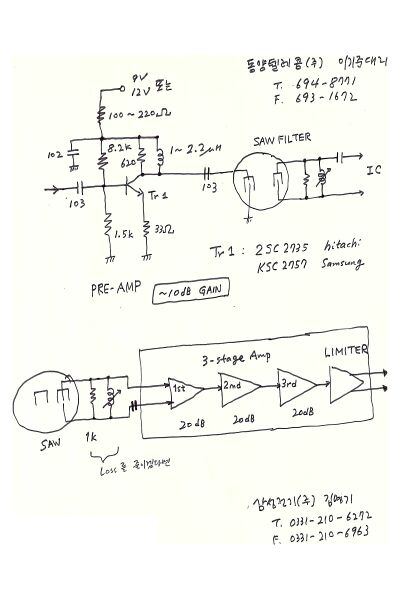 동양텔레콤(주) 이기주대리
T. 694-8771
F. 693-1672
9V
12V 또는
100~220Ω
102
8.2k
620
1~2.2μH
103
Tr1
103
SAW FILTER
IC
1.5k
33Ω
Tr1 : 2SC2735 hitachi
KSC2757 Samsung
PRE-AMP
~10dB GAIN
3-stage Amp
LIMITER
1st
2nd
3rd
20dB
20dB
20dB
SAW
1k
Loss를 줄이려면
삼성전기(주)
T. 0331-210-6272
F. 0331-210-6963